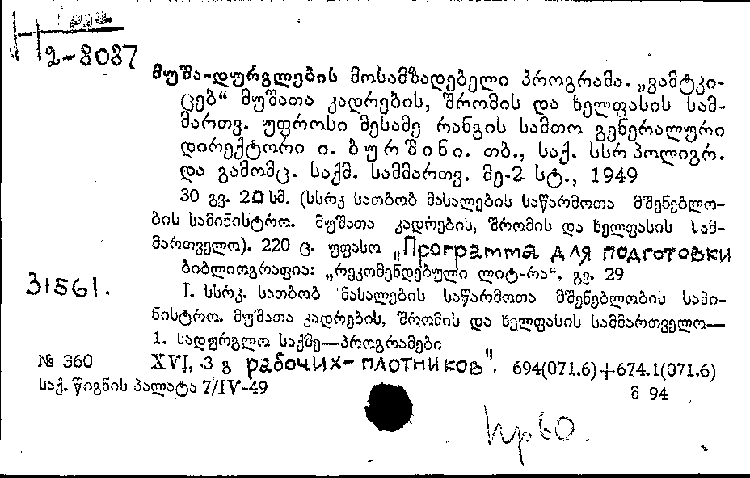 H 2-8087
მუშა-დურგლების მოსამზადებელი პროგრამა. „ვამტკი-
ცებ“ მუშათა კადრების, შრომის და ხელფასის სამ-
მართვ. უფროსი მესამე რანგის სამთო გენერალური
დირექტორი ი. ბურშინი. თბ., საქ. სსრ პოლიგრ.
და გამომც. საქმ. სამმართვ. მე-2 სტ., 1949
30 გვ. 20 სმ. (სსრკ სათბობ მასალების საწარმოთა მშენებლო-
ბის სამინისტრო. მუშათა კადრების, შრომის და ხელფასის სამ-
მართველო). 220 ც. უფასო „Программа для подготовки
ბიბლიოგრაფია: „რეკომენდებული ლიტ-რა“, გვ. 29
31561.
I. სსრკ. სათბობ მასალების საწარმოთა მშენებლობის სამი-
ნისტრო. მუშათა კადრების, შრომის და ხელფასის სამმართველო—
1. სადურგლო საქმე—პროგრამები
№ 360 XVI, 3 გ рабочих-плотников". 694(071.6)+674.1(071.6)
საქ. წიგნის პალატა 7/IV-49 მ 94